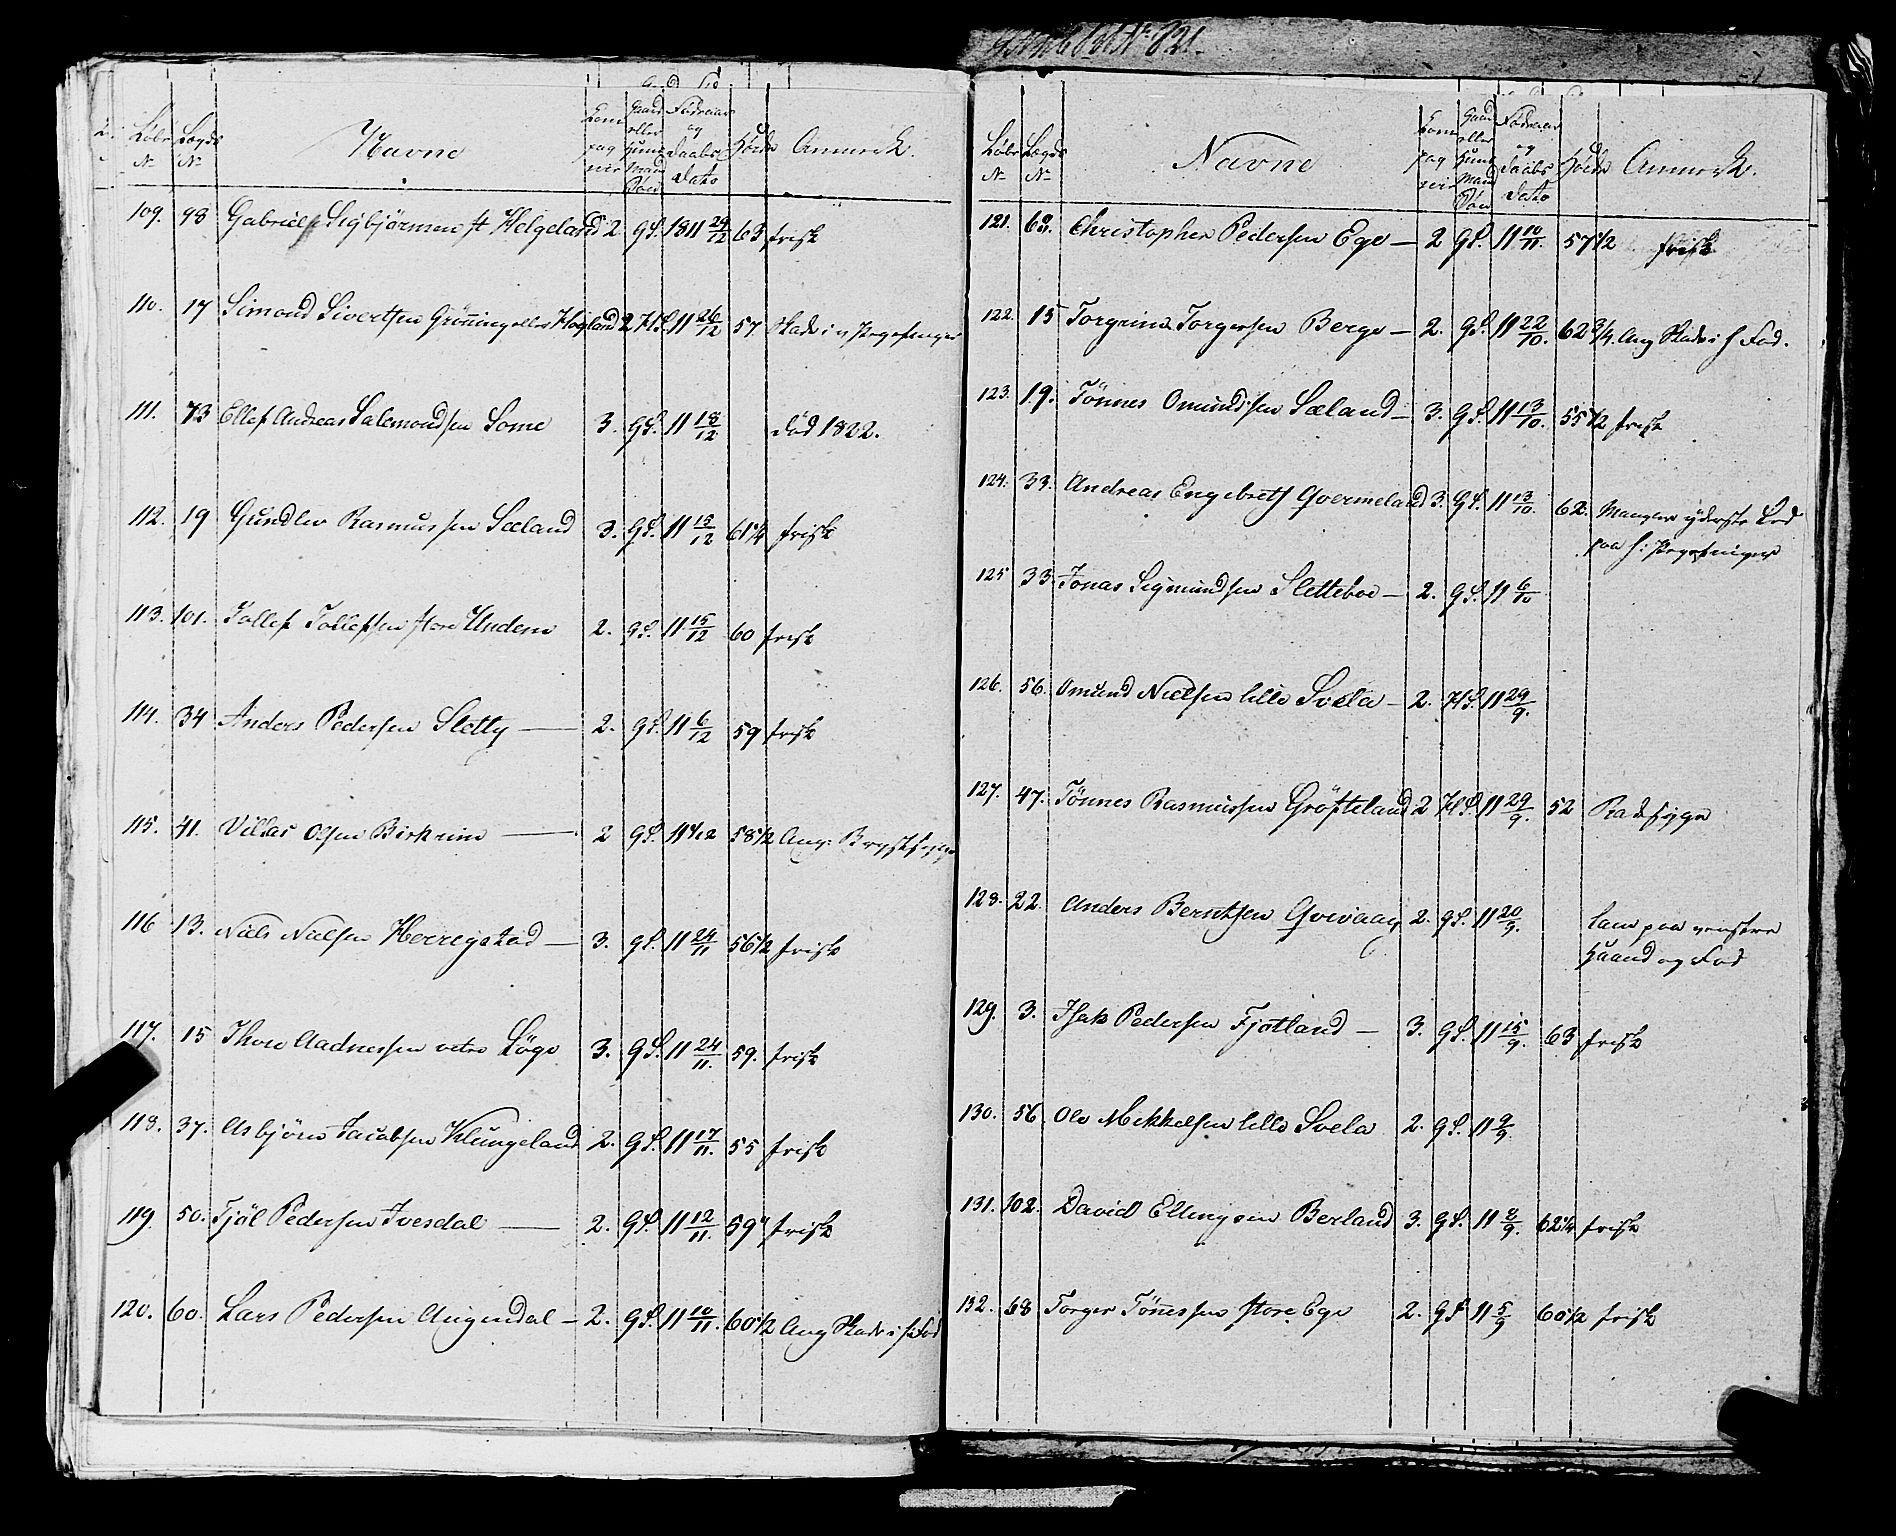 Løbe N. Lægds N. Navne Kompagnie Gaard eller Huusmand Søn Fødeaar og Daabs Dato Høide Anmerk.
109. 98 Gabriel Sigbjørnsen st Helgeland 2 G S. 1811 29/12 63 frisk
110. 17 Simond Sivertsen Grönning eller Hogland 2 H S. 11 26/12 57 Skade i v. Pegefinger
111. 73 Ellef Andreas Salemonsen Some 3. G S. 11 18/12 død 1822.
112. 19 Gundlev Rasmussen Sæland 3. G S. 11 15/12 61 1/4 frisk
113. 101. Tollef Tollefsen store Undem 2. G S. 11 15/12 60 frisk
114. 34 Anders Pedersen Sletty — 2. G S. 11 6/12 59 frisk
115. 41. Villas Olsen Birkrim — 2 G S. 11 4/12 58 1/2 Ang: Brystsyge
116 13. Niels Nielsen Herregstad — 3. G S. 11 24/11 56 1/2 frisk
117. 15 Thore Aadnessen vetre Löge 3. G S. 11 24/11. 59. frisk
118. 37. Asbjörn Jacobsen Klungeland 2. G S. 11 17/11. 55 frisk
119 50. Tjöl Pedersen Ivesdal — 2. G S. 11 12/11. 59 frisk
120. 60. Lars Pedersen Augendal — 2. G S. 11 10/11. 60 1/2 Ang Skade i h: Fod
Løbe N. Lægds N. Navne Kompagnie Gaard eller Huusmand Søn Fødeaar og Daabs Dato Høide Anmerk.
121. 68. Christopher Pedersen Ege — 2 G S. 11 10/11. 57 1/2 frisk
122. 15 Torgrim Torgersen Berge — 2. G S. 11 22/10. 62 3/4. Ang Skade i h Fod.
123. 19. Tönnes Omundsen Sæland — 3. G S. 11 13/10. 55 1/2 frisk
124. 33. Andreas Engebrets Qvermeland 3. G S. 11 13/10. 62. Mangler yderste Led
paa h: Pegefinger
125 33. Jonas Sigmundsen Sletteboe — 2. G S. 11 6/10
126. 56. Omund Nielsen lille Svela — 2. H S. 11 29/9.
127. 47. Tönnes Rasmussen Gröfteland 2 H S. 11 29/9. 52 Radesyge
128. 22. Anders Berntsen Qvivaag 2. G S. 11 20/9. lam paa venstre
Haand og Fod
129. 3. Isak Pedersen Fjotland — 3. G S. 11 15/9. 63 frisk
130. 56. Ole Mikkelsen lille Svela 2. G S. 11 9/9.
131. 102. David Ellingsen Berland 3. G S. 11 8/9. 62 1/4 frisk
132. 68 Torger Tönnessen store Ege 2. G S 11 5/9 60 1/2 frisk